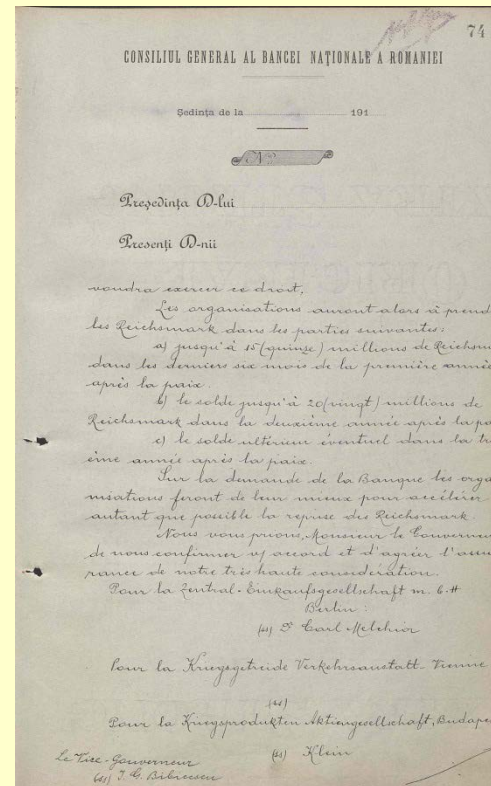 74
CONSILIUL GENERAL AL BANCEI NAŢIONALE A ROMANIEI
Şedinţa de la 191
Preşedinţa D-lui
Presenţi D-nii
voudra exercer ce droit,
Les organisations auront alors à prend
les Reichsmark dans les parties suivantes:
a) jusqu'à 15 (quinze) millions de Reichsm
dans les derniers six mois de la première année
après la paix.
b) le solde jusqu'à 20 (vingt) millions de
Reichsmark dans la deuxième année après la pa
c) le solde ultérieur éventuel dans la tr
ème année après la paix.
Sur la demande de la Banque les orga
nisations feront de leur mieux pour accélérer
autant que possible la reprise des Reichsmark.
Nous vous prions, Monsieur le Gouverneur
de nous confirmer v/ accord et d'agréer l'assu
rance de notre très haute considération.
Pour la Zentral-Einkaufsgesellschaft m. b. H
Berlin:
(ss) Dr Carl Melchior
Pour la Kriegsgetreide Verkehrsanstalt-Vienne
(ss)
Pour la Kriegsprodukten Aktiengesellschaft, Budape
(ss) Klein
Le Vice-Gouverneur
(ss) I. G. Bibicescu